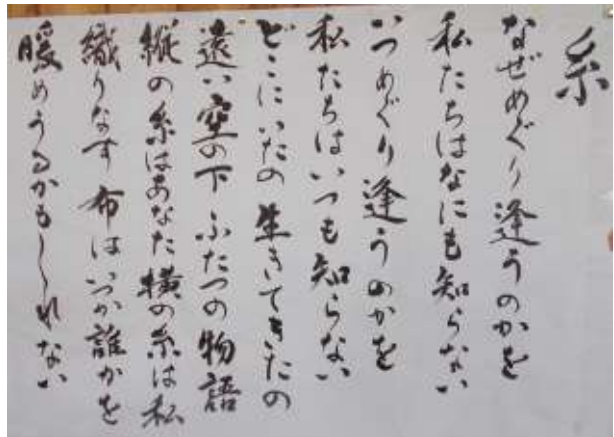 糸
なぜめぐり逢うのかを
私たちはなにも知らない
いつめぐり逢うのかを
私たちはいつも知らない
どこにいたの 生きてきたの
遠い空の下 ふたつの物語
縦の糸はあなた 横の糸は私
織りなす布は いつか誰かを
暖めうるかもしれない